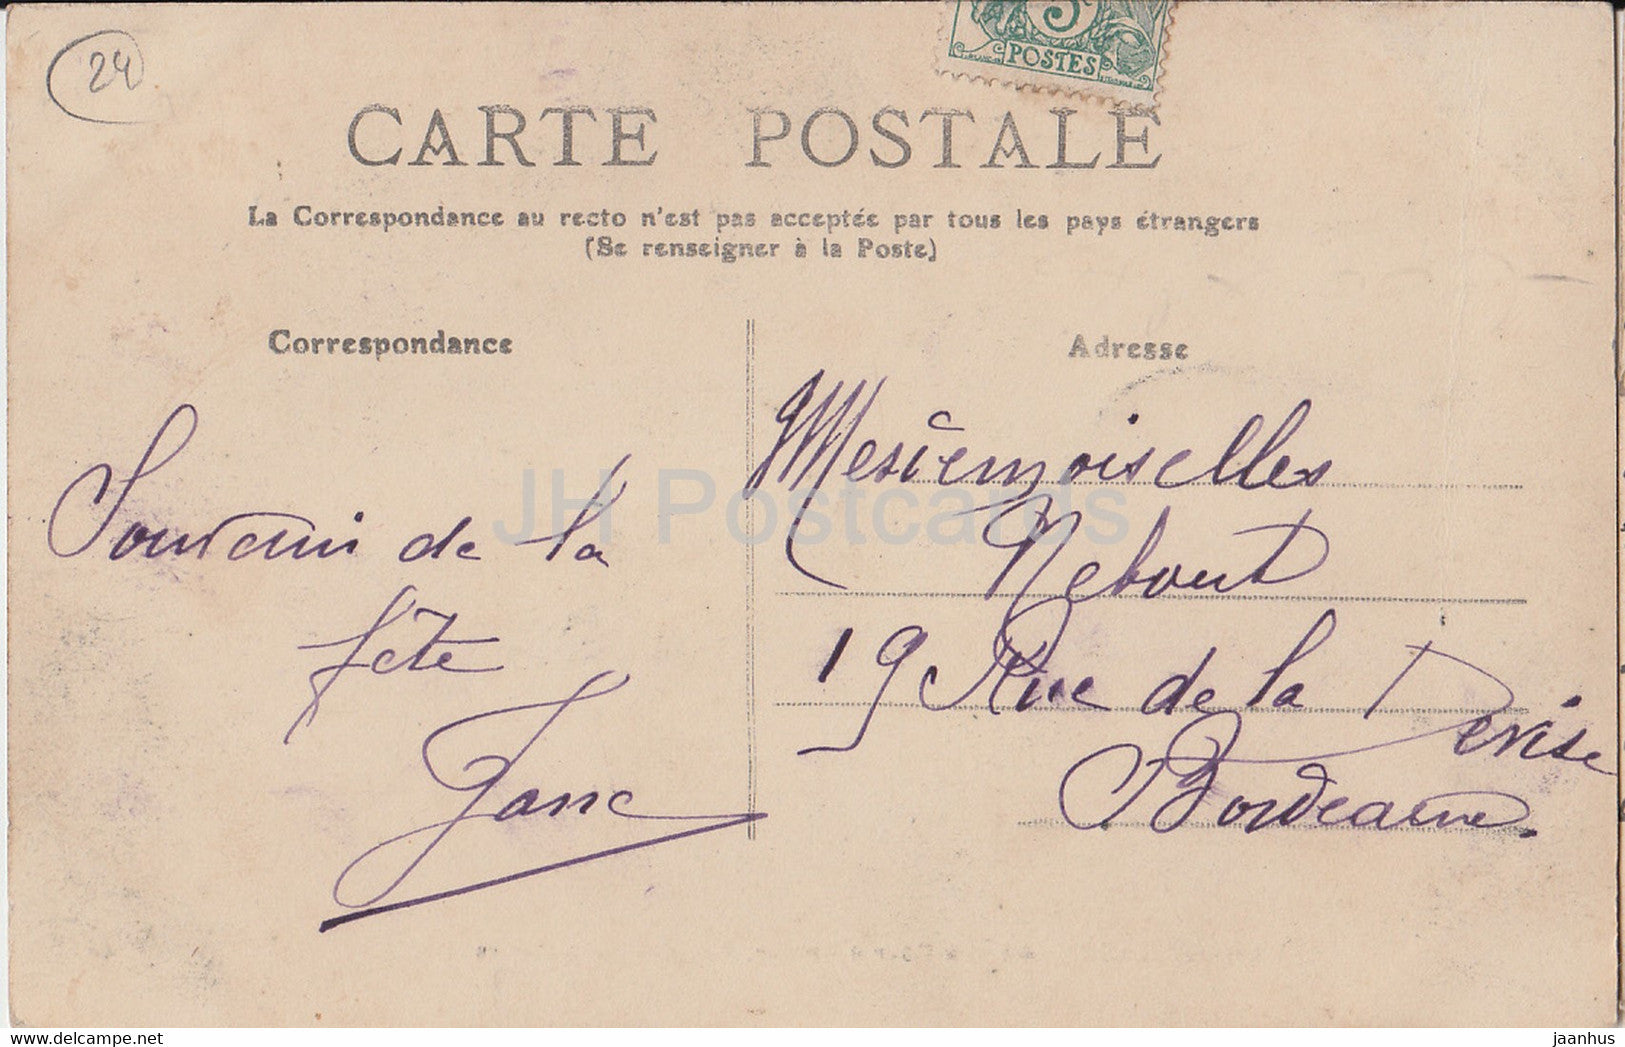 24
5c
POSTES
CARTE POSTALE
La Correspondance au recto n'est pas acceptée par tous les pays étrangers
(Se renseigner à la Poste)
Correspondance
Souvenir de la
fête
Jane
Adresse
Mesdemoiselles
Nebout
19 Rue de la Devise
Bordeaux.
JH Postcards
jaanhus